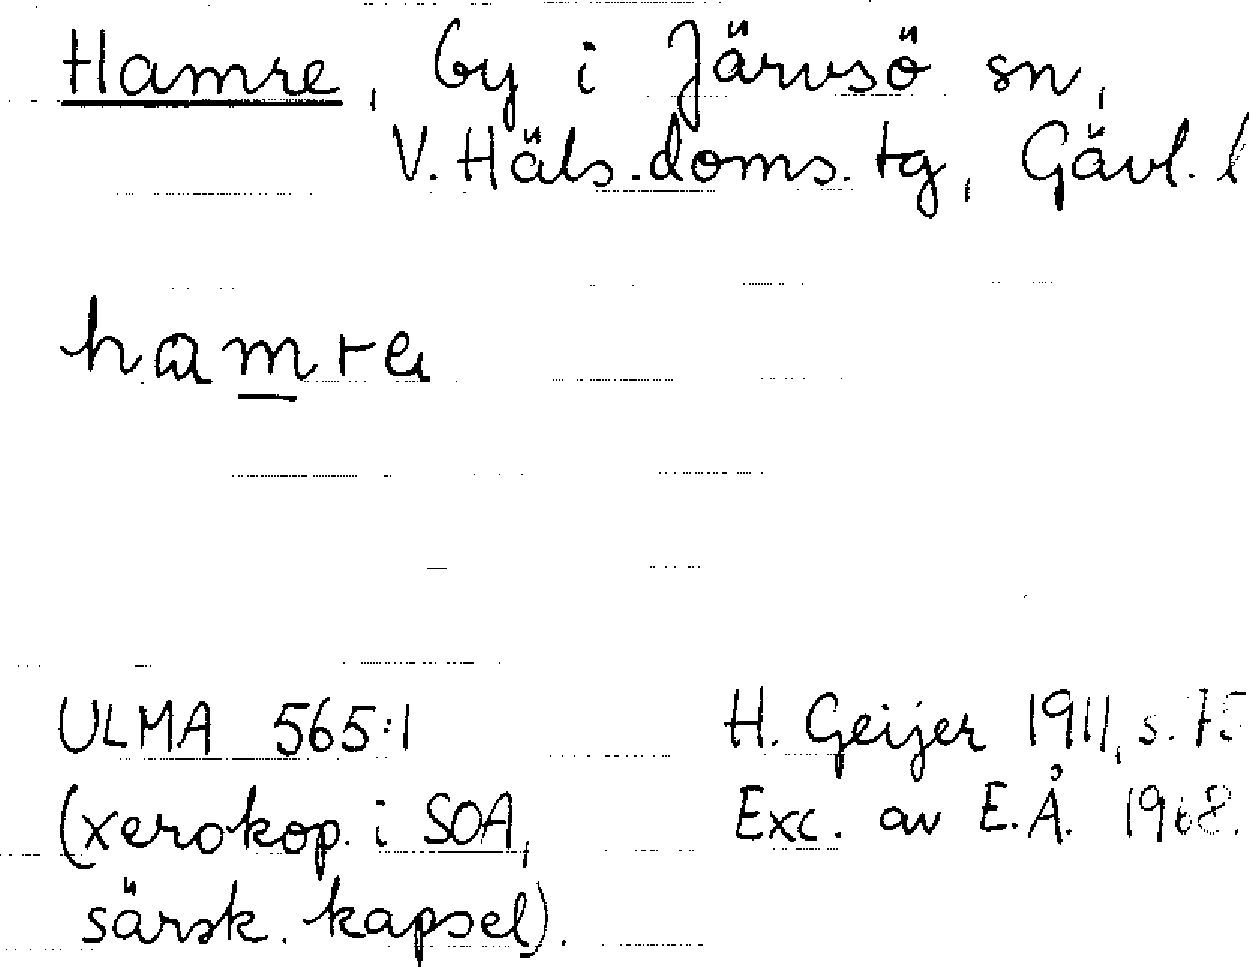 Hamre, by i Järvsö sn,
V. Häls. doms. tg, Gävl. l
hamre
ULMA 565:1
H. Geijer 1911, s. 75
(xerokop. i SOA,
Exc. av E.Å. 1968.
särsk. kapsel).